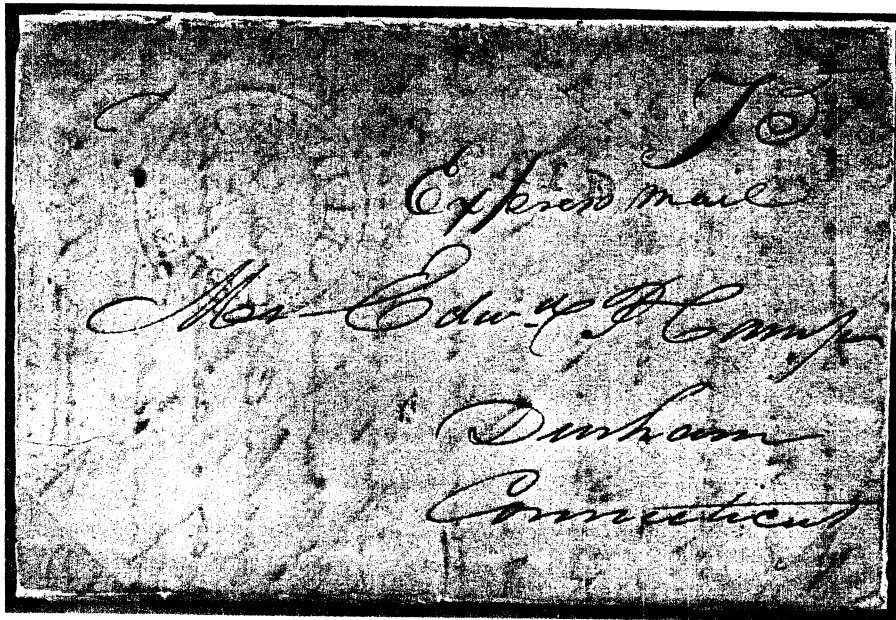 75
Express mail
Mr Edwd P Camp
Durham
Connecticut